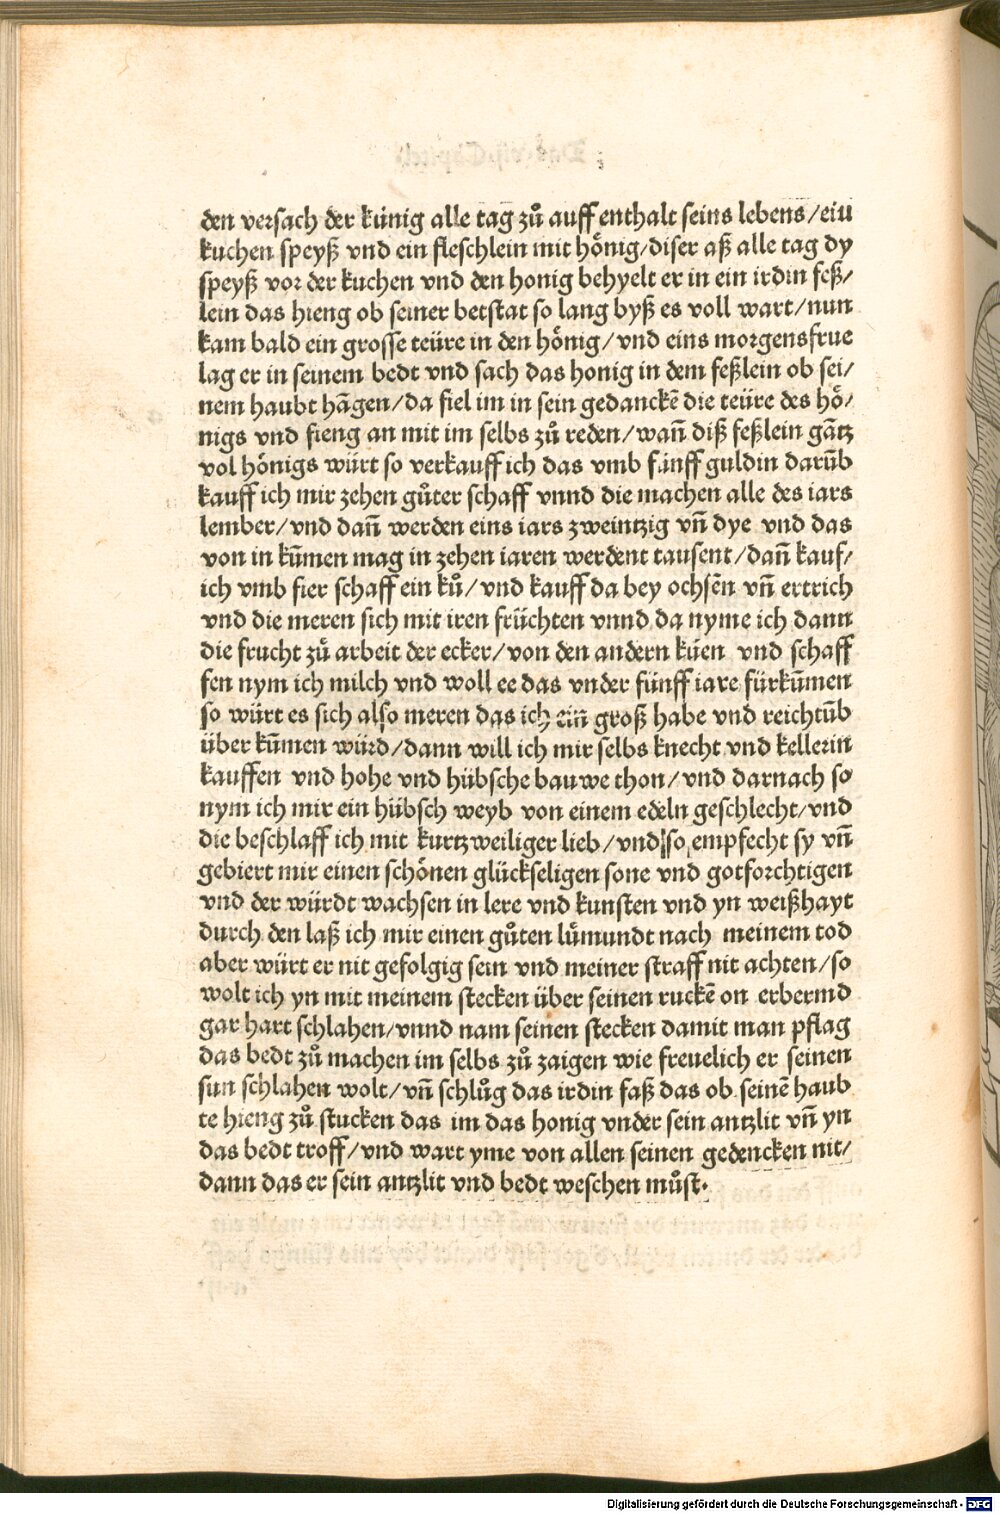 den versach der künig alle tag zů auff enthalt seins lebens/ein
kuchen speyß vnd ein fleschlein mit hönig/diser aß alle tag dy
speyß vor der kuchen vnd den honig behyelt er in ein irdin feß/
lein das hieng ob seiner betstat so lang byß es voll wart/nun
kam bald ein grosse teüre in den hönig/vnd eins morgensfrue
lag er in seinem bedt vnd sach das honig in dem feßlein ob sei/
nem haubt hāgen/da fiel im in sein gedanckē die teüre des hö/
nigs vnd fieng an mit im selbs zů reden/wañ diß feßlein gātz
vol hönigs würt so verkauff ich das vmb fünff guldin darūb
kauff ich mir zehen gůter schaff vnnd die machen alle des iars
lember/vnd dañ werden eins iars zweintzig vñ dye vnd das
von in kūmen mag in zehen iaren werdent tausent/dañ kauf/
ich vmb fier schaff ein ků/vnd kauff da bey ochsēn vñ ertrich
vnd die meren sich mit iren früchten vnnd da nyme ich dann
die frucht zů arbeit der ecker/von den andern küen vnd schaff
fen nym ich milch vnd woll ee das vnder fünff iare fürkūmen
so würt es sich also meren das ich ein groß habe vnd reichtūb
über kūmen würd/dann will ich mir selbs knecht vnd kellerin
kauffen vnd hohe vnd hübsche bauwe thon/vnd darnach so
nym ich mir ein hübsch weyb von einem edeln geschlecht/vnd
die beschlaff ich mit kurtzweiliger lieb/vnd so empfecht sy vñ
gebiert mir einen schönen glückseligen sone vnd gotforchtigen
vnd der würdt wachsen in lere vnd kunsten vnd yn weißhayt
durch den laß ich mir einen gůten lümundt nach meinem tod
aber würt er nit gefolgig sein vnd meiner straff nit achten/so
wolt ich yn mit meinem stecken über seinen ruckē on erbermd
gar hart schlahen/vnnd nam seinen stecken damit man pflag
das bedt zů machen im selbs zů zaigen wie freuelich er seinen
sun schlahen wolt/vñ schlůg das irdin faß das ob seinē haub
te hieng zů stucken das im das honig vnder sein antzlit vñ yn
das bedt troff/vnd wart yme von allen seinen gedencken nit/
dann das er sein antzlit vnd bedt weschen můst.
Digitalisierung gefördert durch die Deutsche Forschungsgemeinschaft - DFG